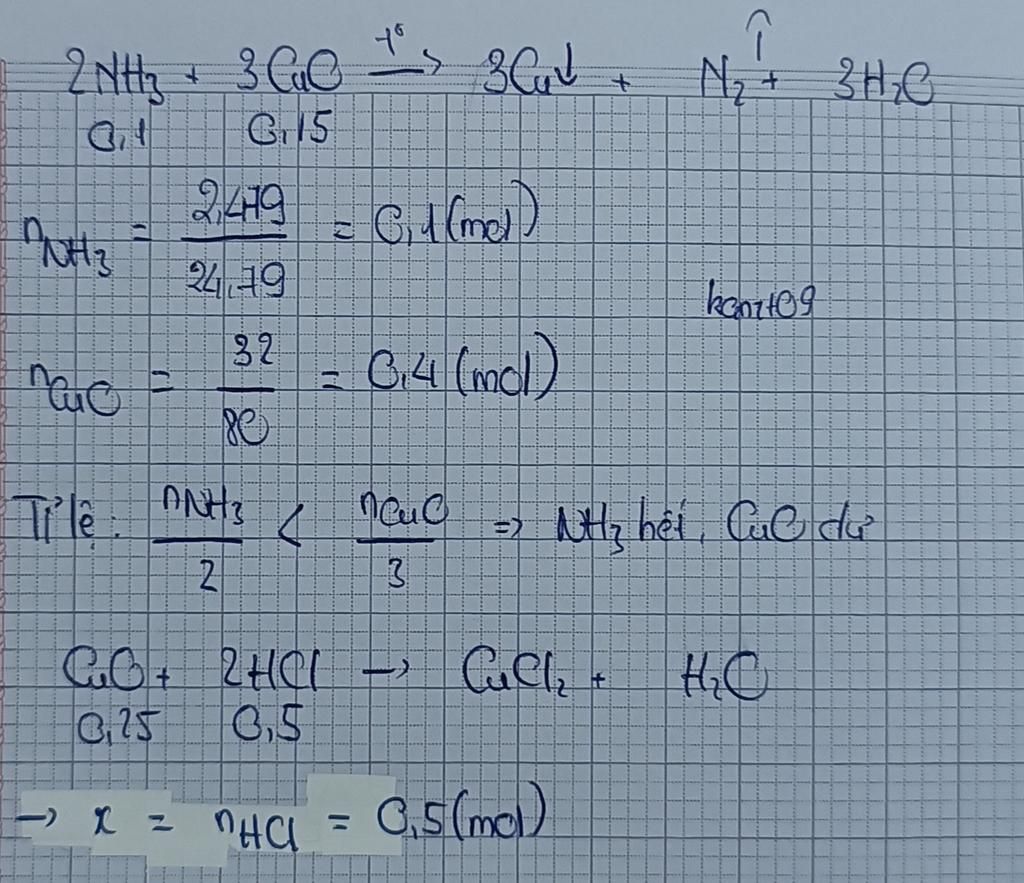 2NH₃ + 3CuO →(t°) 3Cu↓ + N₂↑ + 3H₂O
0,1 0,15
nNH₃ = 2,479/24,79 = 0,1 (mol)
kanz+09
nCuO = 32/80 = 0,4 (mol)
Tỉ lệ: nNH₃/2 < nCuO/3 => NH₃ hết, CuO dư
CuO + 2HCl → CuCl₂ + H₂O
0,25 0,5
→ x = nHCl = 0,5 (mol)